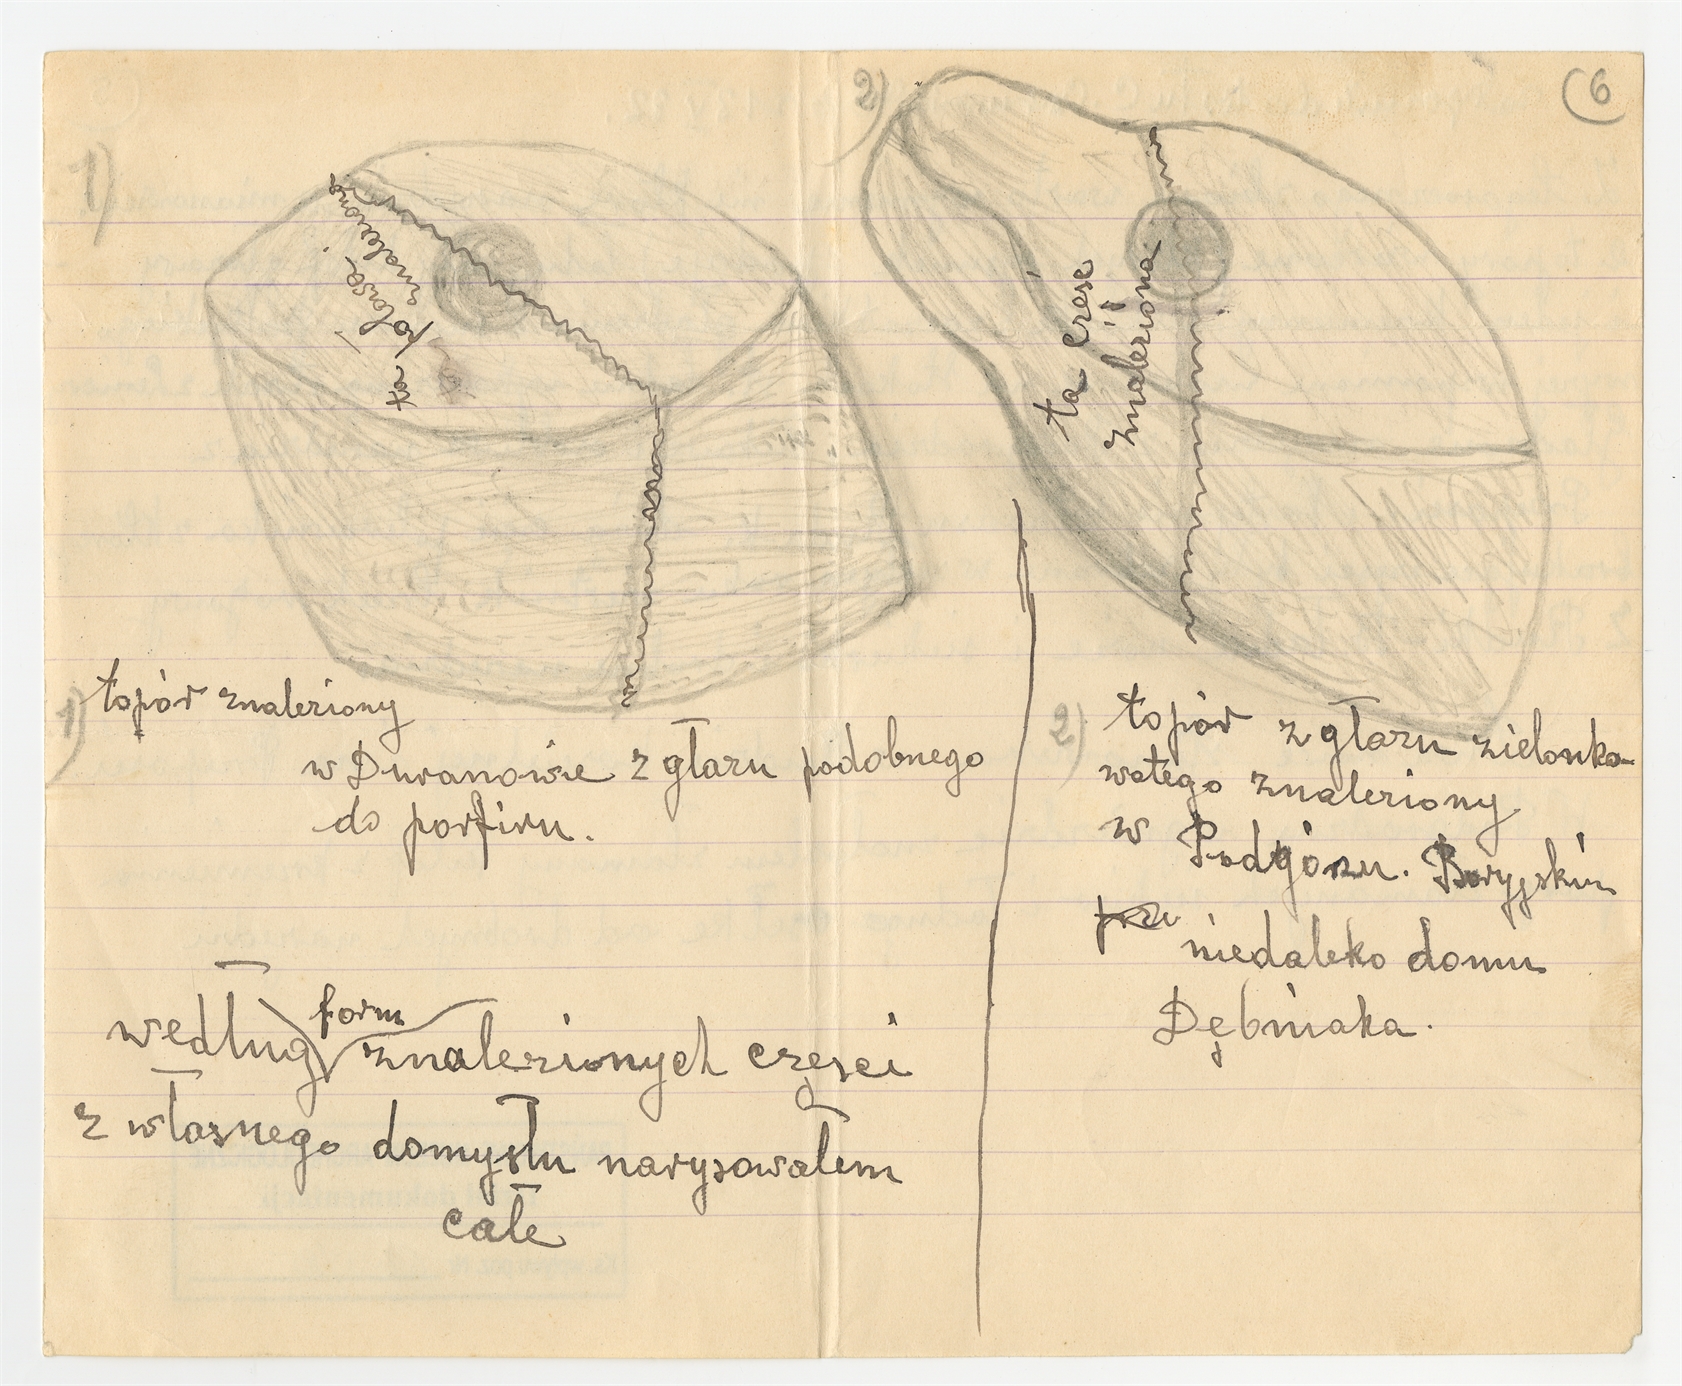 (6
1)
ta połowa
znaleziona
2)
ta czesc
znaleziona
1) topór znaleziony
w Duranowie z głazu podobnego
do porfiru.
2) topór z głazu zielonka-
watego znaleziony
w Podgórzu.
niedaleko domu
Dębniaka.
form
według znalezionych częsci
z własnego domysłu narysowałem
całe